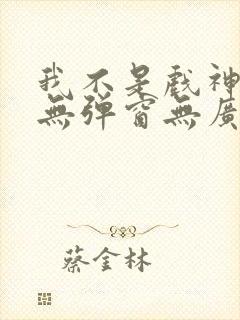 我不是戲神
無彈窗無廣
蔡金林